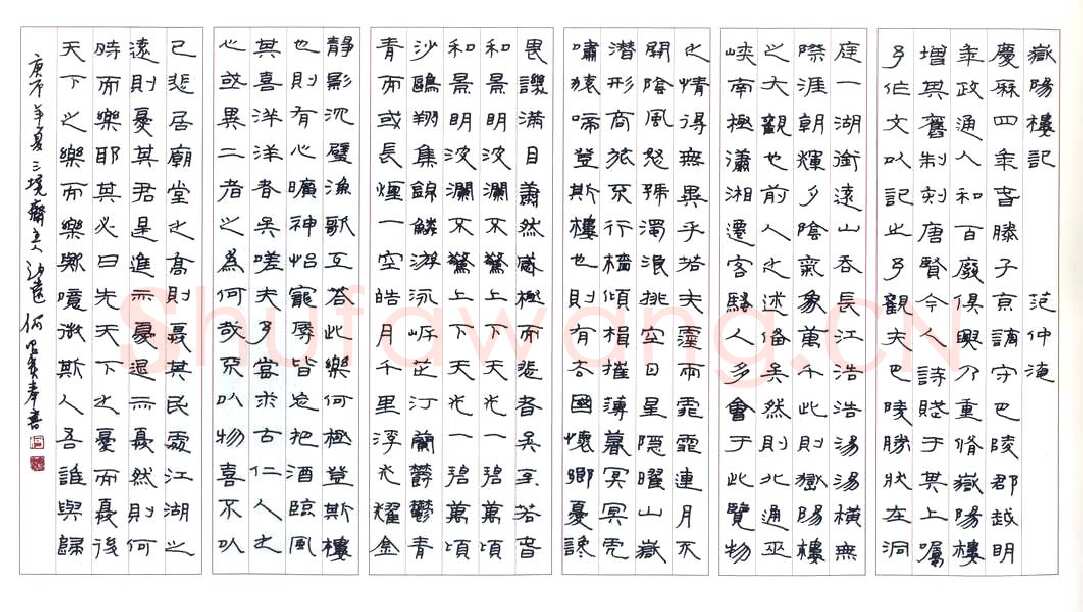 嶽陽樓記 范仲淹
慶厤四年春滕子京謫守巴陵郡越明
年政通人和百廢俱興乃重脩嶽陽樓
增其舊制刻唐賢今人詩賦于其上囑
予作文以記之予觀夫巴陵勝狀在洞
庭一湖銜遠山吞長江浩浩湯湯橫無
際涯朝輝夕陰氣象萬千此則嶽陽樓
之大觀也前人之述俻矣然則北通巫
峽南極瀟湘遷客騷人多會于此覽物
之情得無異乎若夫霪雨霏霏連月不
開陰風怒號濁浪排空日星隱曜山嶽
潛形商旅不行檣傾楫摧薄暮冥冥虎
嘯猿啼登斯樓也則有去國懷鄉憂讒
畏譏滿目蕭然感極而悲者矣至若春
和景明波瀾不驚上下天光一碧萬頃
和景明波瀾不驚上下天光一碧萬頃
沙鷗翔集錦鱗游泳岸芷汀蘭鬱鬱青
青而或長煙一空皓月千里浮光耀金
靜影沉璧漁歌互荅此樂何極登斯樓
也則有心曠神怡寵辱皆忘把酒臨風
其喜洋洋者矣嗟夫予嘗求古仁人之
心或異二者之為何哉不以物喜不以
己悲居廟堂之高則憂其民處江湖之
遠則憂其君是進亦憂退亦憂然則何
時而樂耶其必曰先天下之憂而憂後
天下之樂而樂歟噫微斯人吾誰與歸
年夏三境齋主 遠 何 奉書
Shufawang.CN